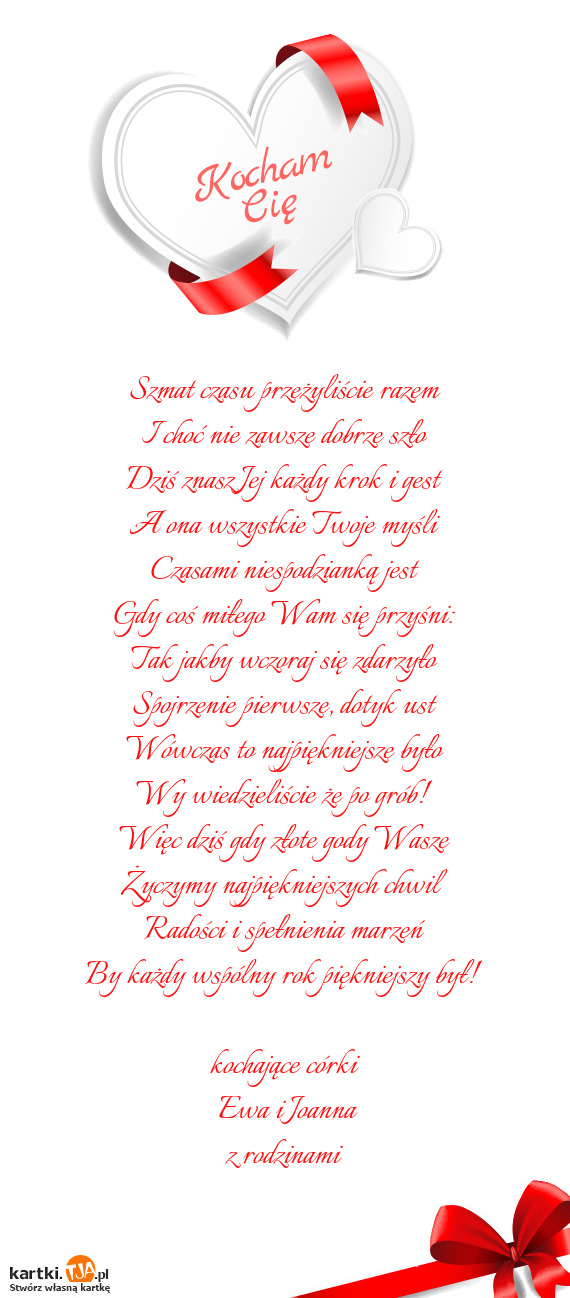 Kocham
Cię
Szmat czasu przeżyliście razem
I choć nie zawsze dobrze szło
Dziś znasz Jej każdy krok i gest
A ona wszystkie Twoje myśli
Czasami niespodzianką jest
Gdy coś miłego Wam się przyśni:
Tak jakby wczoraj się zdarzyło
Spojrzenie pierwsze, dotyk ust
Wówczas to najpiękniejsze było
Wy wiedzieliście że po grób!
Więc dziś gdy złote gody Wasze
Życzymy najpiękniejszych chwil
Radości i spełnienia marzeń
By każdy wspólny rok piękniejszy był!
kochające córki
Ewa i Joanna
z rodzinami
kartki.TJA.pl
Stwórz własną kartkę